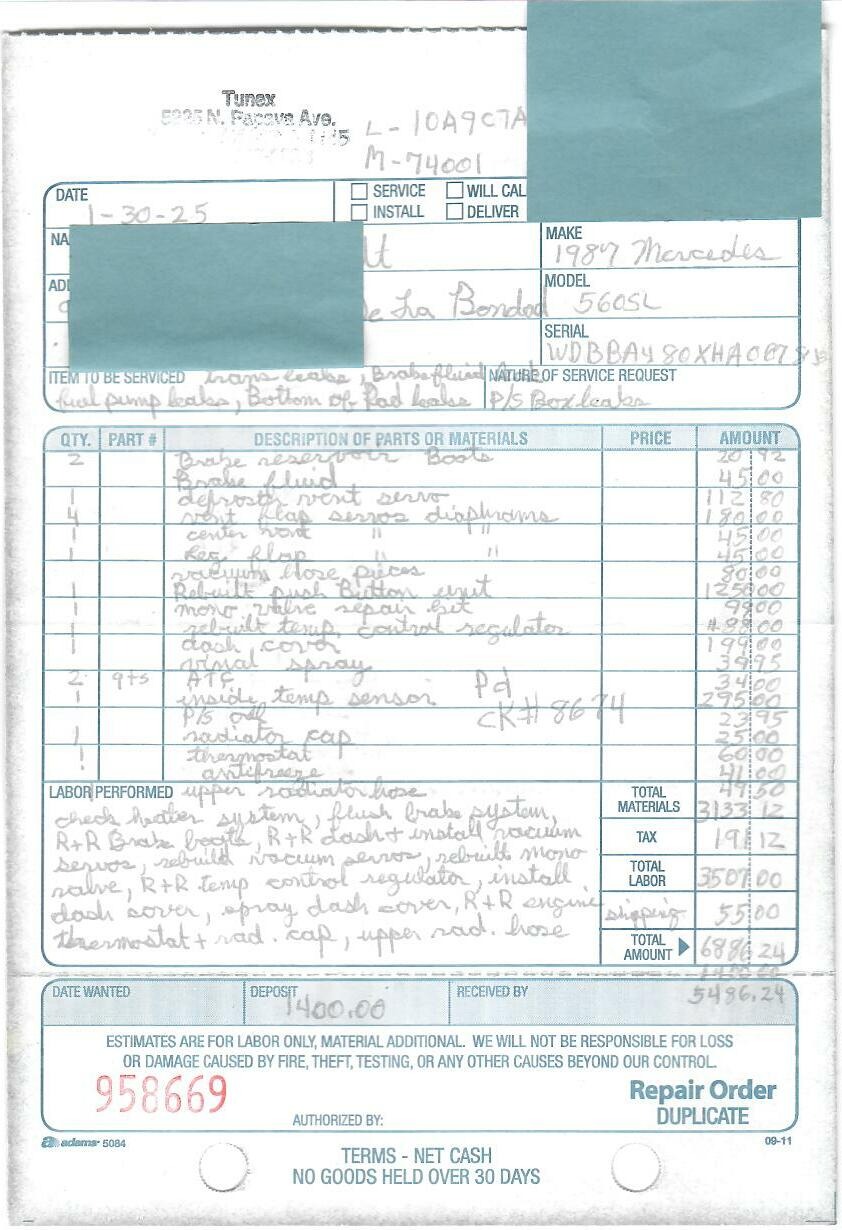 Tunex
N. Papaya Ave.
L - 10A9C7A
M - 74001
DATE
1-30-25
SERVICE WILL CAL
INSTALL DELIVER
NA
lt
MAKE
1987 Mercedes
ADD
De La Bondad
MODEL
560SL
SERIAL
ITEM TO BE SERVICED trans leaks, Brake fluid
fuel pump leaks, Bottom of Rad leaks
NATURE OF SERVICE REQUEST
P/S Box leaks
QTY. PART # DESCRIPTION OF PARTS OR MATERIALS PRICE AMOUNT
2 Brake reservoir Boots 20 92
Brake fluid 45 00
1 defroster vent servo 112 80
4 vent flap servos diaphrams 180 00
1 center vent " 45 00
1 Reg flap " 45 00
vacuum hose pieces 80 00
1 Rebuilt push Button unit 1250 00
1 mono valve repair kit 99 00
1 rebuilt temp control regulator 488 00
1 dash cover 199 00
vinal spray 39 95
2 qts ATF 34 00
1 inside temp sensor 295 00
Pd
CK# 8674
P/S oil 23 95
1 radiator cap 25 00
1 thermostat 60 00
antifreeze 41 00
LABOR PERFORMED upper radiator hose 49 50
check heater system, flush brake system,
R+R Brake boots, R+R dash + install vacuum
servos, rebuild vacuum servos, rebuilt mono
valve, R+R temp control regulator, install
dash cover, spray dash cover, R+R engine
thermostat + rad. cap, upper rad. hose
TOTAL MATERIALS 3133 12
TAX 191 12
TOTAL LABOR 3507 00
shipping 55 00
TOTAL AMOUNT 6886 24
1400 00
5486.24
DATE WANTED
DEPOSIT
1400.00
RECEIVED BY
ESTIMATES ARE FOR LABOR ONLY, MATERIAL ADDITIONAL. WE WILL NOT BE RESPONSIBLE FOR LOSS
OR DAMAGE CAUSED BY FIRE, THEFT, TESTING, OR ANY OTHER CAUSES BEYOND OUR CONTROL.
958669
Repair Order
DUPLICATE
AUTHORIZED BY:
adams 5084
09-11
TERMS - NET CASH
NO GOODS HELD OVER 30 DAYS